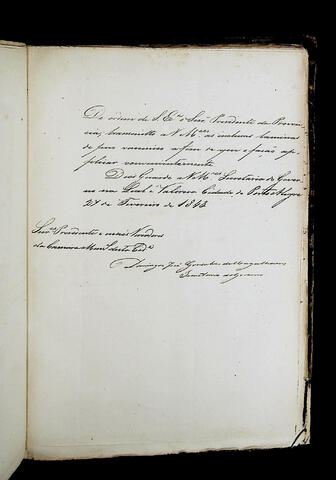 De ordem de S. Exª o Senr Presidente da Provin-
cia, transmitto a V. Mces as inclusas laminas
de puz vaccinico a fim de que o fação ap-
plicar convenientemente.
Deos Guarde a V. Mces Secretaria do Gover-
no na Leal e Valorosa Cidade de Porto Alegre
27 de Fevereiro de 1843
Senres Presidente e mais Vereadores
da Camara Munal desta Cide
Domingos José Gonçalves de Magalhaens
Secretario do Governo